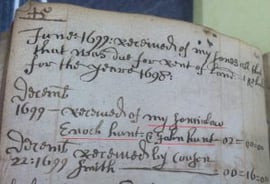 45
June: 1699: received of my Sones all
that was due for Rent of Land:
for the yeare 1698:
Decemb
1699 – received of my Soninlaw
Enoch hunt: & John hunt – 02 = 00 = 00
Decemb received by Cousen
22: 1699 Smith — 00 = 16 = 00